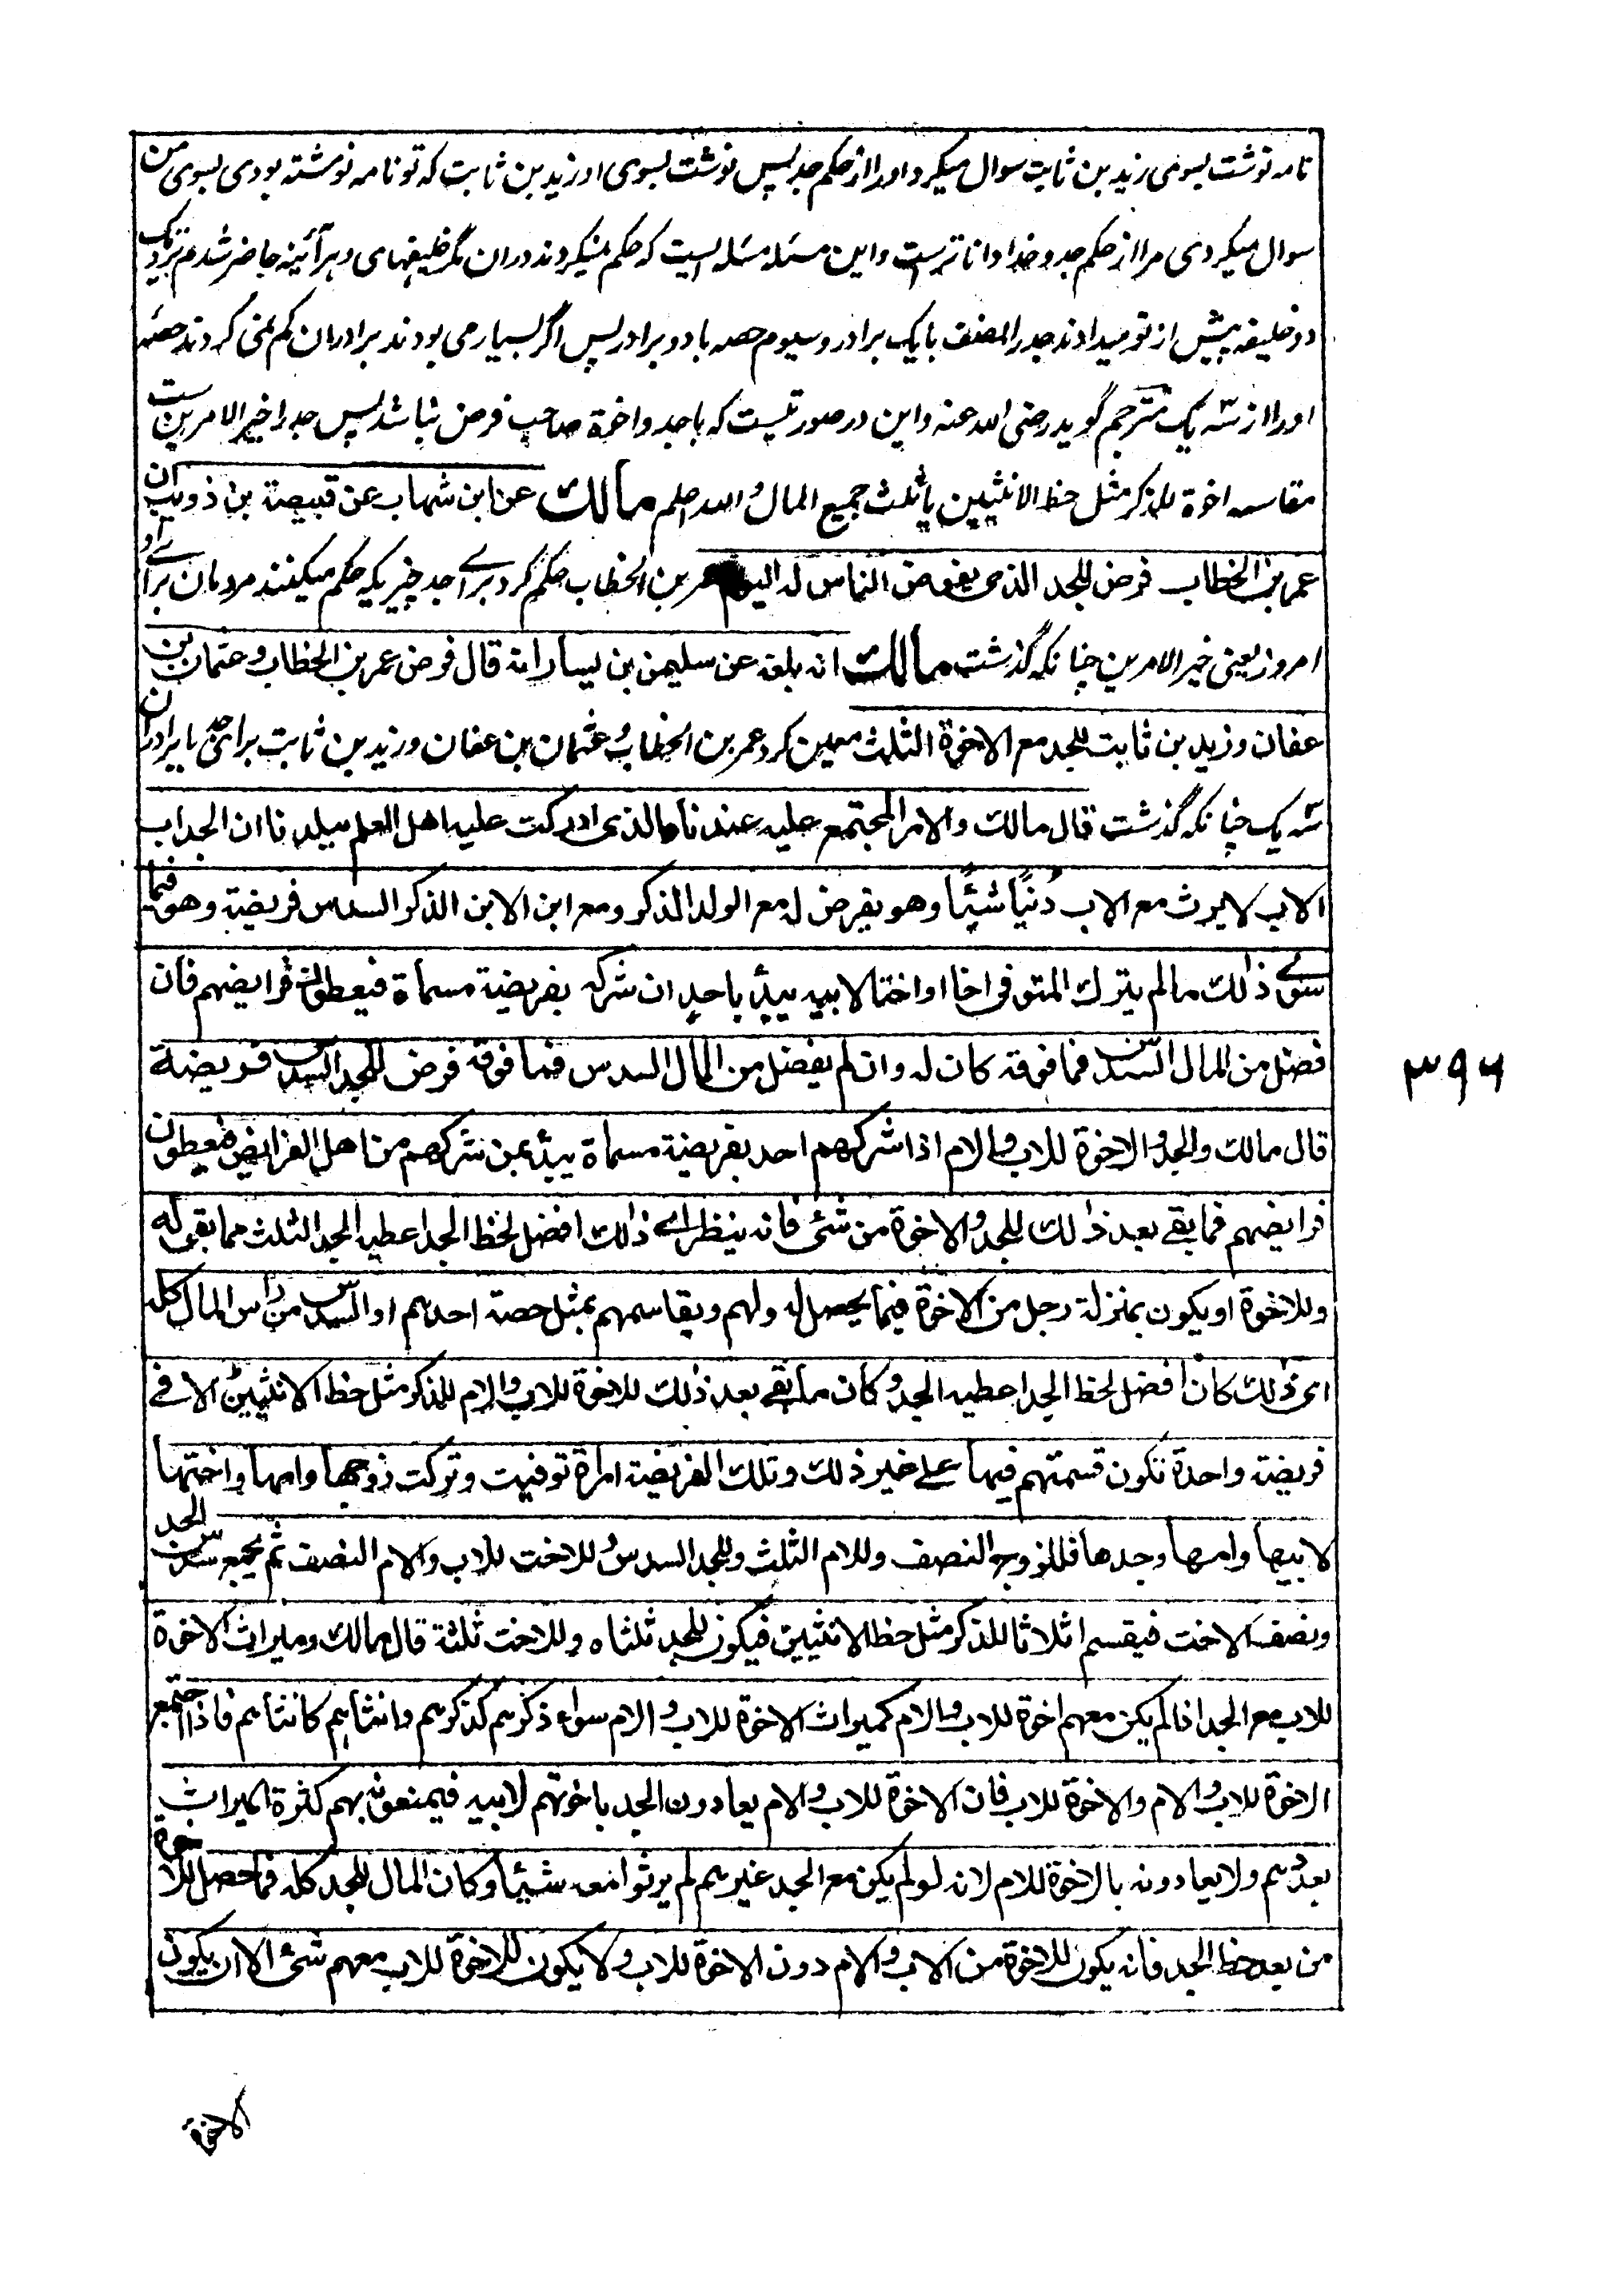 نامه نوشت بسوی زید بن ثابت سوال میکرد او را از حکم جد پس نوشت بسوی او زید بن ثابت که تو نامه نوشته بودی بسوی من
سوال میکردی مرا از حکم جد و خدا داناترست و این مسئله مسئله ایست که حکم نمیکردند دران مگر خلیفهای و هر آئینه حاضر شدم نزدیک
دو خلیفه پیش از تو میدادند جد را نصف با یک برادر و سیوم حصه با دو برادر پس اگر بسیار می بودند برادران کم نمی کردند حصّه
او را از سه یک مترجم گوید رضی الله عنه و این در صورتیست که با جد و اخوة صاحب فرض نباشد پس جد را خیر الامرین ست
مقاسمه اخوة للذکر مثل حظ الانثیین یا ثلث جمیع المال و الله اعلم مالك عن ابن شهاب عن قبیصة بن ذویب ان
عمر بن الخطاب فرض للجد الذی یفرض الناس له الیوم عمر بن الخطاب حکم کرد برای جد چیزیکه حکم میکنند مردمان برای او
امروز یعنی خیر الامرین چنانکه گذشت مالك انه بلغه عن سلیمن بن یسار انه قال فرض عمر بن الخطاب و عثمان بن
عفان و زید بن ثابت للجد مع الاخوة الثلث معین کرد عمر بن الخطاب و عثمان بن عفان و زید بن ثابت برای جد با برادران
سه یک چنانکه گذشت قال مالك والامر المجتمع علیه عندنا والذی ادرکت علیه اهل العلم ببلدنا ان الجد اب
الاب لا یرث مع الاب دُنیًا شیئًا وهو یفرض له مع الولد الذکر ومع ابن الابن الذکر السدس فریضة وهو فیما
سوی ذلك مالم یترك المتوفی اخا او اختا لابیه یبدّأ باحد ان شرکه بفریضة مسماة فیعطون فرایضهم فان
فضل من المال السدس فما فوقه کان له وان لم یفضل من المال السدس فما فوقه فرض للجد السدس فریضة
قال مالك والجد والاخوة للاب والام اذا شرکهم احد بفریضة مسماة یبدّء بمن شرکهم من اهل الفرایض فیعطون
فرایضهم فما بقی بعد ذلك للجد والاخوة من شیء فانه ینظر ای ذلك افضل لحظ الجد اعطیه الجد الثلث مما بقی له
وللاخوة او یکون بمنزلة رجل من الاخوة فیما یحصل له ولهم ویقاسمهم بمثل حصة احدهم او السدس من راس المال کله
ای ذلك کان افضل لحظ الجد اعطیه الجد وکان ما بقی بعد ذلك للاخوة للاب والام للذکر مثل حظ الانثیین الا فی
فریضة واحدة تکون قسمتهم فیها علی غیر ذلك وتلك الفریضة امراة توفیت وترکت زوجها وامها واختها
لابیها وامها وجدها فللزوج النصف وللام الثلث وللجد السدس وللاخت للاب والام النصف ثم یجمع سدس الجد
ونصف الاخت فیقسم اثلاثا للذکر مثل حظ الانثیین فیکون للجد ثلثاه وللاخت ثلثه قال مالك ومیراث الاخوة
للاب مع الجد اذا لم یکن معهم اخوة للاب والام کمیراث الاخوة للاب والام سواء ذکرهم کذکرهم وانثاهم کانثاهم فاذا اجتمع
الاخوة للاب والام والاخوة للاب فان الاخوة للاب والام یعادون الجد باخوتهم لابیه فیمنعونه بهم کثرة المیراث
بعددهم ولا یعادونه بالاخوة للام لانه لو لم یکن مع الجد غیرهم لم یرثوا معه شیئا وکان المال للجد کله فما حصل للاخوة
من بعد حظ الجد فانه یکون للاخوة من الاب والام دون الاخوة للاب ولا یکون للاخوة للاب معهم شیء الا ان یکون
۳۹۶
الاخوة